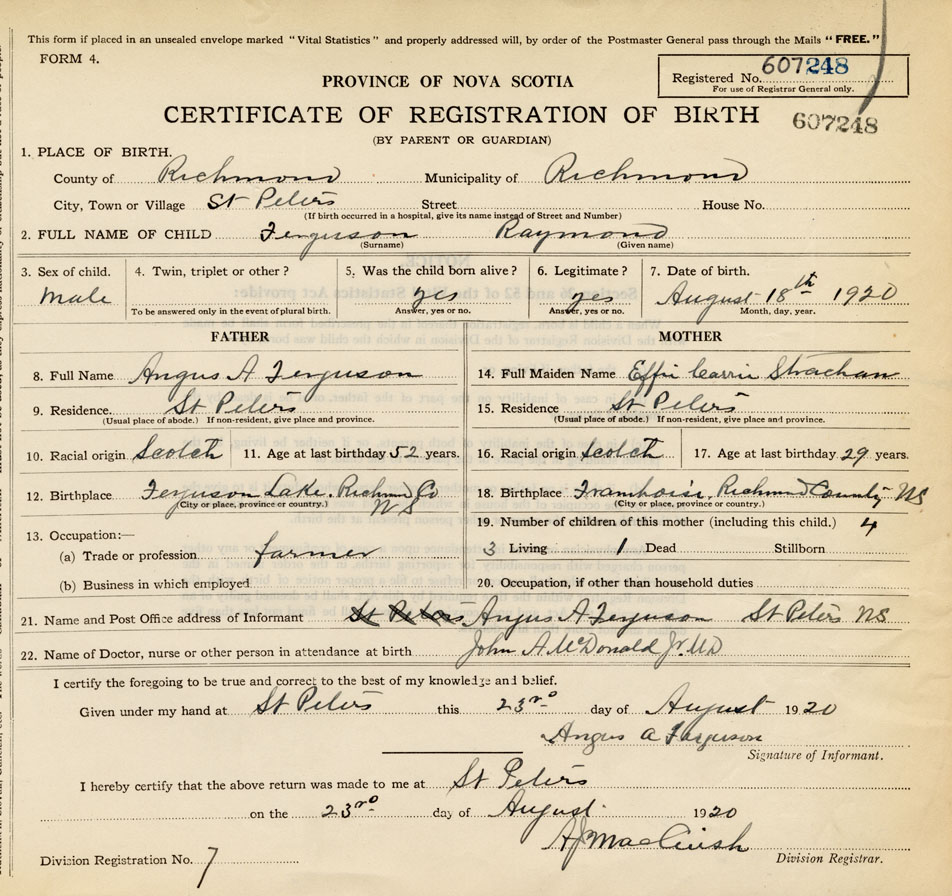 This form if placed in an unsealed envelope marked "Vital Statistics" and properly addressed will, by order of the Postmaster General pass through the Mails "FREE."
FORM 4.
Registered No. 607248
For use of Registrar General only.
PROVINCE OF NOVA SCOTIA
CERTIFICATE OF REGISTRATION OF BIRTH
607248
(BY PARENT OR GUARDIAN)
1. PLACE OF BIRTH.
County of Richmond Municipality of Richmond
City, Town or Village St Peters Street House No.
(If birth occurred in a hospital, give its name instead of Street and Number)
2. FULL NAME OF CHILD Ferguson Raymond
(Surname) (Given name)
3. Sex of child. 4. Twin, triplet or other? 5. Was the child born alive? 6. Legitimate? 7. Date of birth.
Male yes yes August 18th 1920
To be answered only in the event of plural birth. Answer, yes or no. Answer, yes or no. Month, day, year.
FATHER MOTHER
8. Full Name Angus A Ferguson 14. Full Maiden Name Effie Carrie Strachan
9. Residence. St Peters 15. Residence St Peters
(Usual place of abode.) If non-resident, give place and province. (Usual place of abode.) If non-resident, give place and province.
10. Racial origin Scotch 11. Age at last birthday 52 years. 16. Racial origin Scotch 17. Age at last birthday 29 years.
12. Birthplace Ferguson Lake. Richmd Co NS 18. Birthplace Framboise, Richmond County NS
(City or place, province or country.) (City or place, province or country.)
19. Number of children of this mother (including this child.) 4
13. Occupation:—
(a) Trade or profession farmer 3 Living 1 Dead Stillborn
(b) Business in which employed 20. Occupation, if other than household duties
21. Name and Post Office address of Informant St Peters Angus A Ferguson St Peters NS
22. Name of Doctor, nurse or other person in attendance at birth John A McDonald Jr. MD
I certify the foregoing to be true and correct to the best of my knowledge and belief.
Given under my hand at St Peters this 23rd day of August 1920
Angus A Ferguson
Signature of Informant.
I hereby certify that the above return was made to me at St Peters
on the 23rd day of August 1920
AJ MacCuish
Division Registration No. 7 Division Registrar.